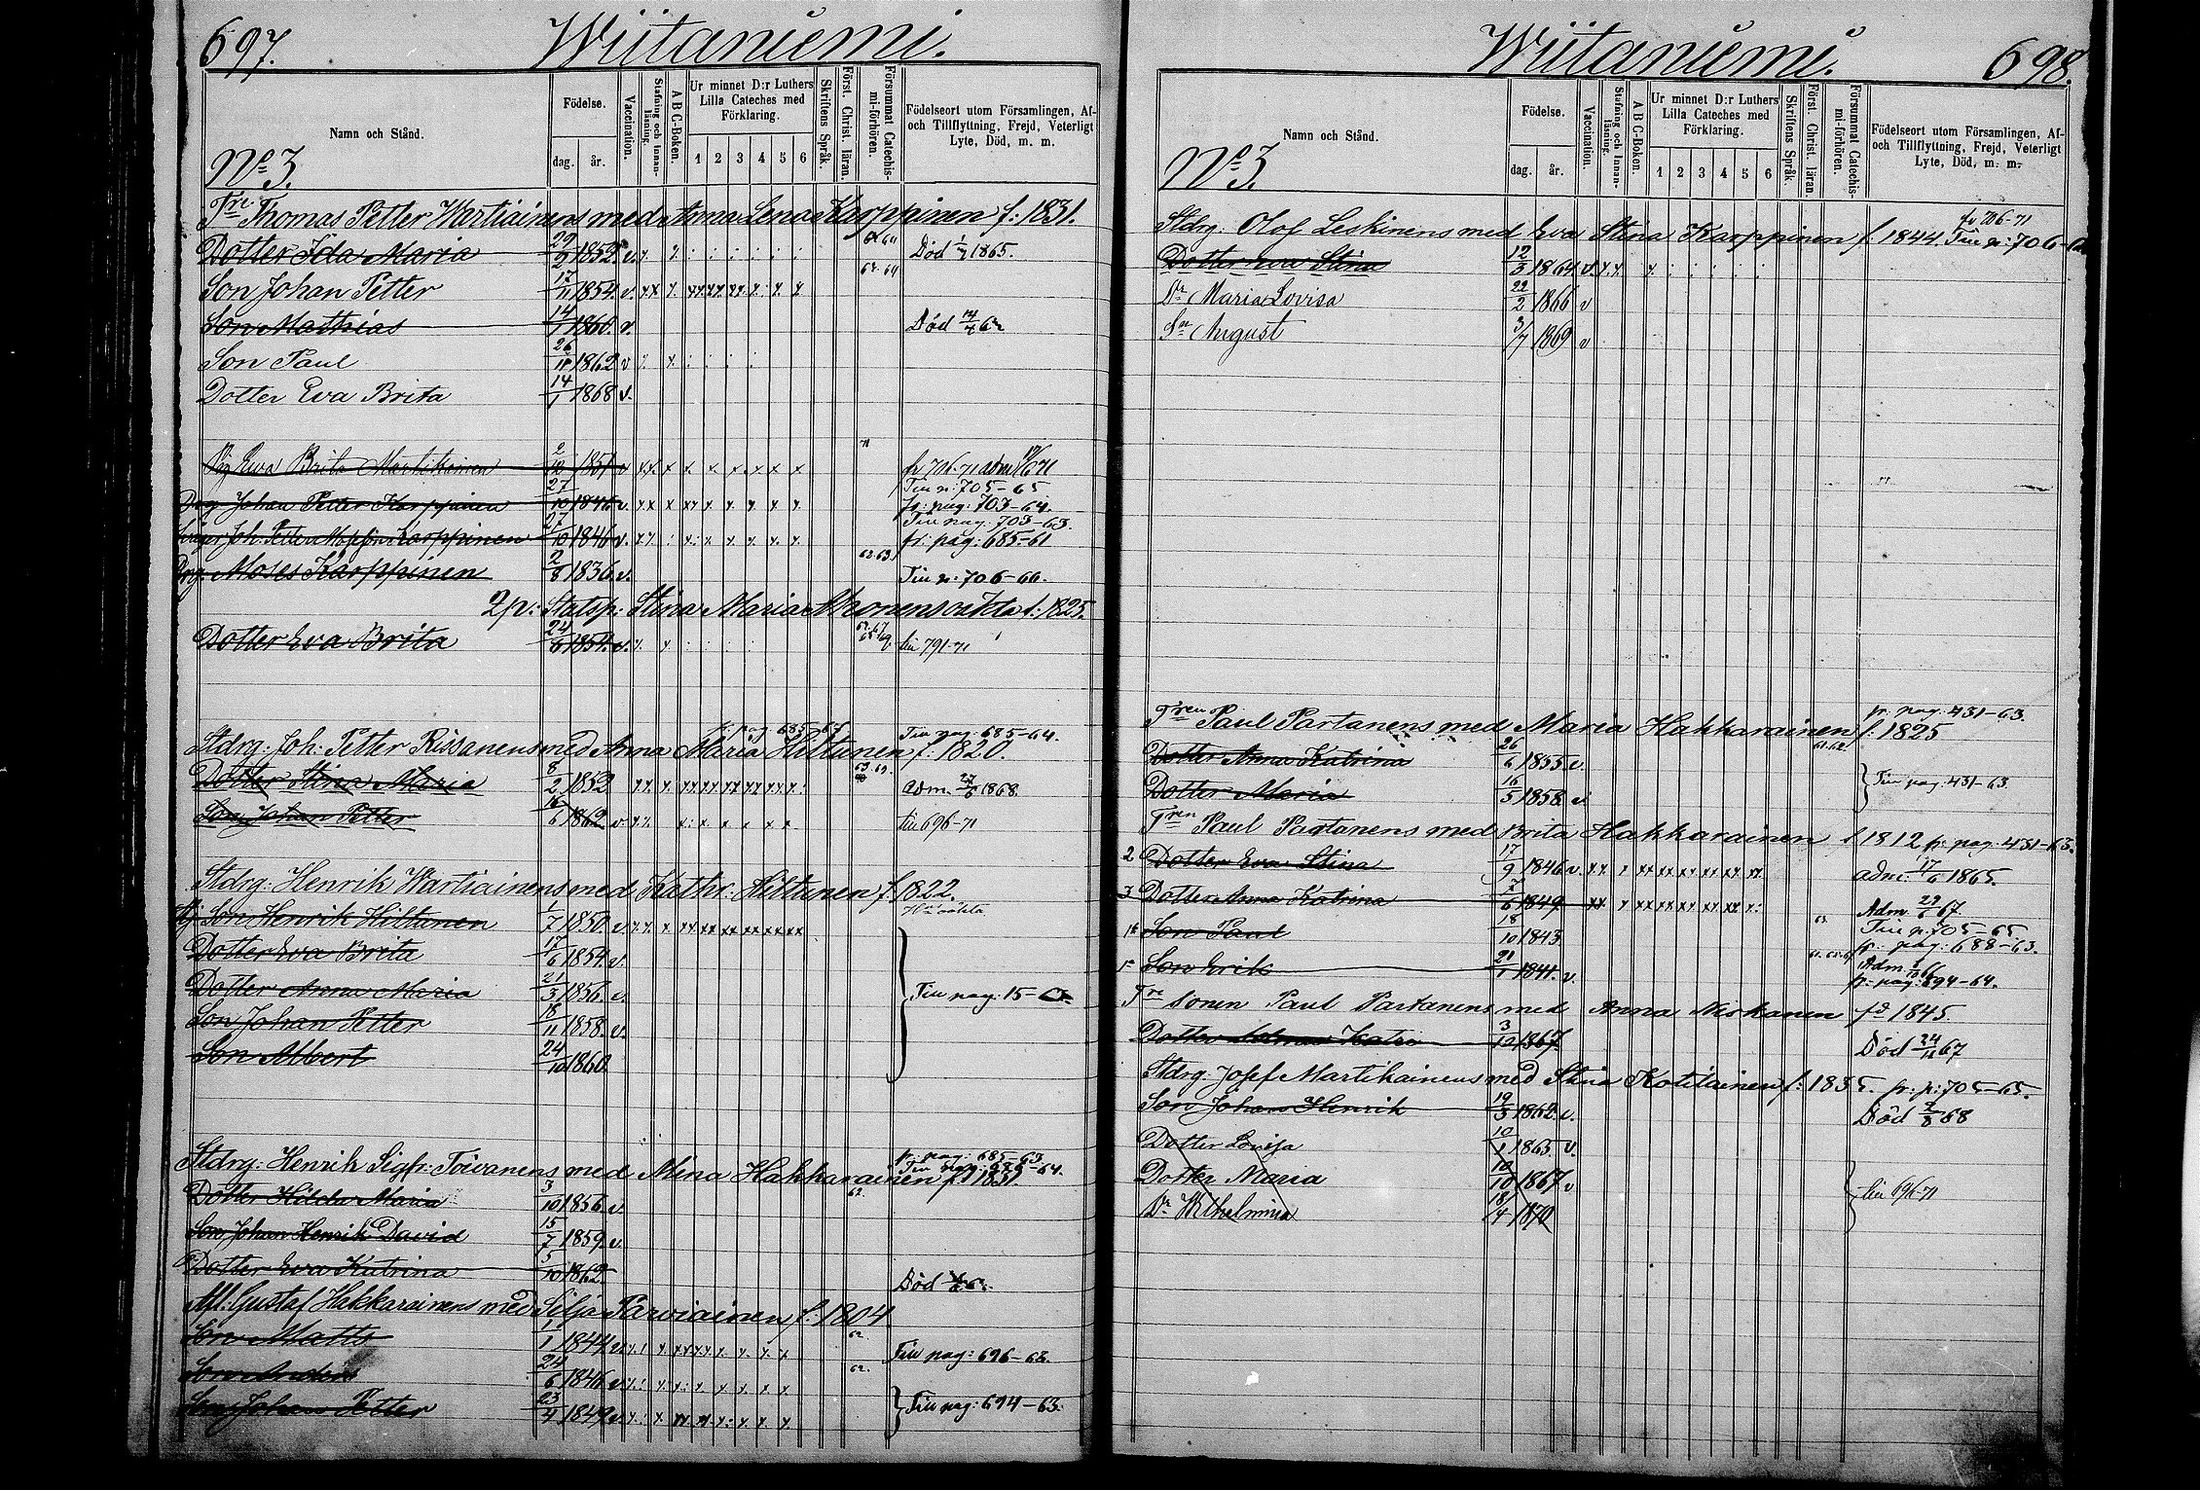 697. Wiitaniemi.
Namn och Stånd.
Födelse.
dag. år.
Vaccination.
Stafning och Innanläsning.
A B C-Boken.
Ur minnet D:r Luthers Lilla Cateches med Förklaring.
1 2 3 4 5 6
Skriftens Språk.
Först. Christ. läran.
Försummat Catechismi-förhören.
Födelseort utom Församlingen, Af- och Tillflyttning, Frejd, Veterligt Lyte, Död, m. m.
No 3.
Trn Thomas Petter Wartiainens med Anna Lena Karppinen f: 1831.
Dotter Ida Maria 1852 v. Död 1865.
Son Johan Petter 17/11 1854 v.
Son Mathias 14/1 1860 v. Död
Son Paul 26/11 1862 v
Dotter Eva Brita 14/1 1868 v.
Eva Brita Martikainen 2/12 1851 v fr 706-71 adm
Tin p: 705-65
Drg Johan Petter Karppinen 27/10 1846 v. fr: pag: 703-64.
Tin pag: 703-63.
Joh: Petter Karppinen 27/10 1846 v. fr: pag: 685-61
Drg: Moses Karppinen 2/8 1836 v. 62.63. Tin p: 706-66.
2 p: Statsp: Stina Maria f: 1825.
Dotter Eva Brita 24/6 1854 v. tin 791-71
fr pag 685-67 Tin pag: 685-64.
Stdrg: Joh: Petter Rissanens med Anna Maria Hiltunen f: 1820.
Dotter Stina Maria 8/2 1852 Adm. 1868.
Son Johan Petter 16/6 1862 v tin 696-71
Stdrg: Henrik Wartiainens med Kathr: Hiltunen f. 1822.
Son Henrik Hiltunen 1/7 1850 v
Dotter Eva Brita 17/6 1854 v.
Dotter Anna Maria 21/3 1856 v. Tin pag: 15-
Son Johan Petter 18/11 1858 v.
Son Albert 24/10 1860
fr: pag: 685-63
Stdrg: Henrik Sigfr: Toivanens med Mina Hakkarainen f: 1831
Dotter Hilda Maria 3/10 1856 v. 62.
Son Johan Henrik David 15/7 1859 v.
Dotter Eva Katrina 5/10 1862. Död
Afl: Gustaf Hakkarainens med Silja Parviainen f: 1804
Son Matts 1/1 1844 v 62 Tin pag: 696-63.
Son Anders 24/6 1846 v 62.
Son Johan Petter 23/4 1849 v Tin pag: 694-63.
Wiitaniemi. 698.
Namn och Stånd.
Födelse.
dag. år.
Vaccination.
Stafning och Innanläsning.
A B C-Boken.
Ur minnet D:r Luthers Lilla Cateches med Förklaring.
1 2 3 4 5 6
Skriftens Språk.
Först. Christ. läran.
Försummat Catechismi-förhören.
Födelseort utom Församlingen, Af- och Tillflyttning, Frejd, Veterligt Lyte, Död, m. m.
No 3.
fr 706-71
Stdrg: Olof Leskinens med Eva Stina Karppinen f. 1844. Tin p: 706-
Dotter Eva Stina 12/3 1864 v
Dr Maria Lovisa 22/2 1866 v
Sn August 3/7 1869 v
fr: pag: 431-63.
Tren Paul Partanens med Maria Hakkarainen f: 1825
Dotter Anna Katrina 26/6 1855 v. 61.62.
Dotter Maria 16/5 1858 v. Tin pag: 431-63.
Tren Paul Partanens med Brita Hakkarainen f 1812 fr: pag: 431-63.
2 Dotter Eva Stina 17/9 1846 v. Adm: 1865.
3 Dotter Anna Katrina 1849 Adm 67.
Tin p: 705-65
Son Paul 18/10 1843 fr: pag: 688-63.
Son Erik 21/1 1841 v. Adm 66
fr: pag: 694-64.
Trn sonen Paul Partanens med Anna Niskanen fd 1845.
Dotter Katri 3/12 1867 Död 67
Stdrg: Josef Martikainens med Stina Kotilainen f: 1835. fr: p: 705-65.
Son Johan Henrik 19/3 1862 v. Död 68
Dotter Lovisa 10/1 1865 v.
Dotter Maria 10/10 1867 v tin 696-71
Dr Wilhelmina 18/4 1870